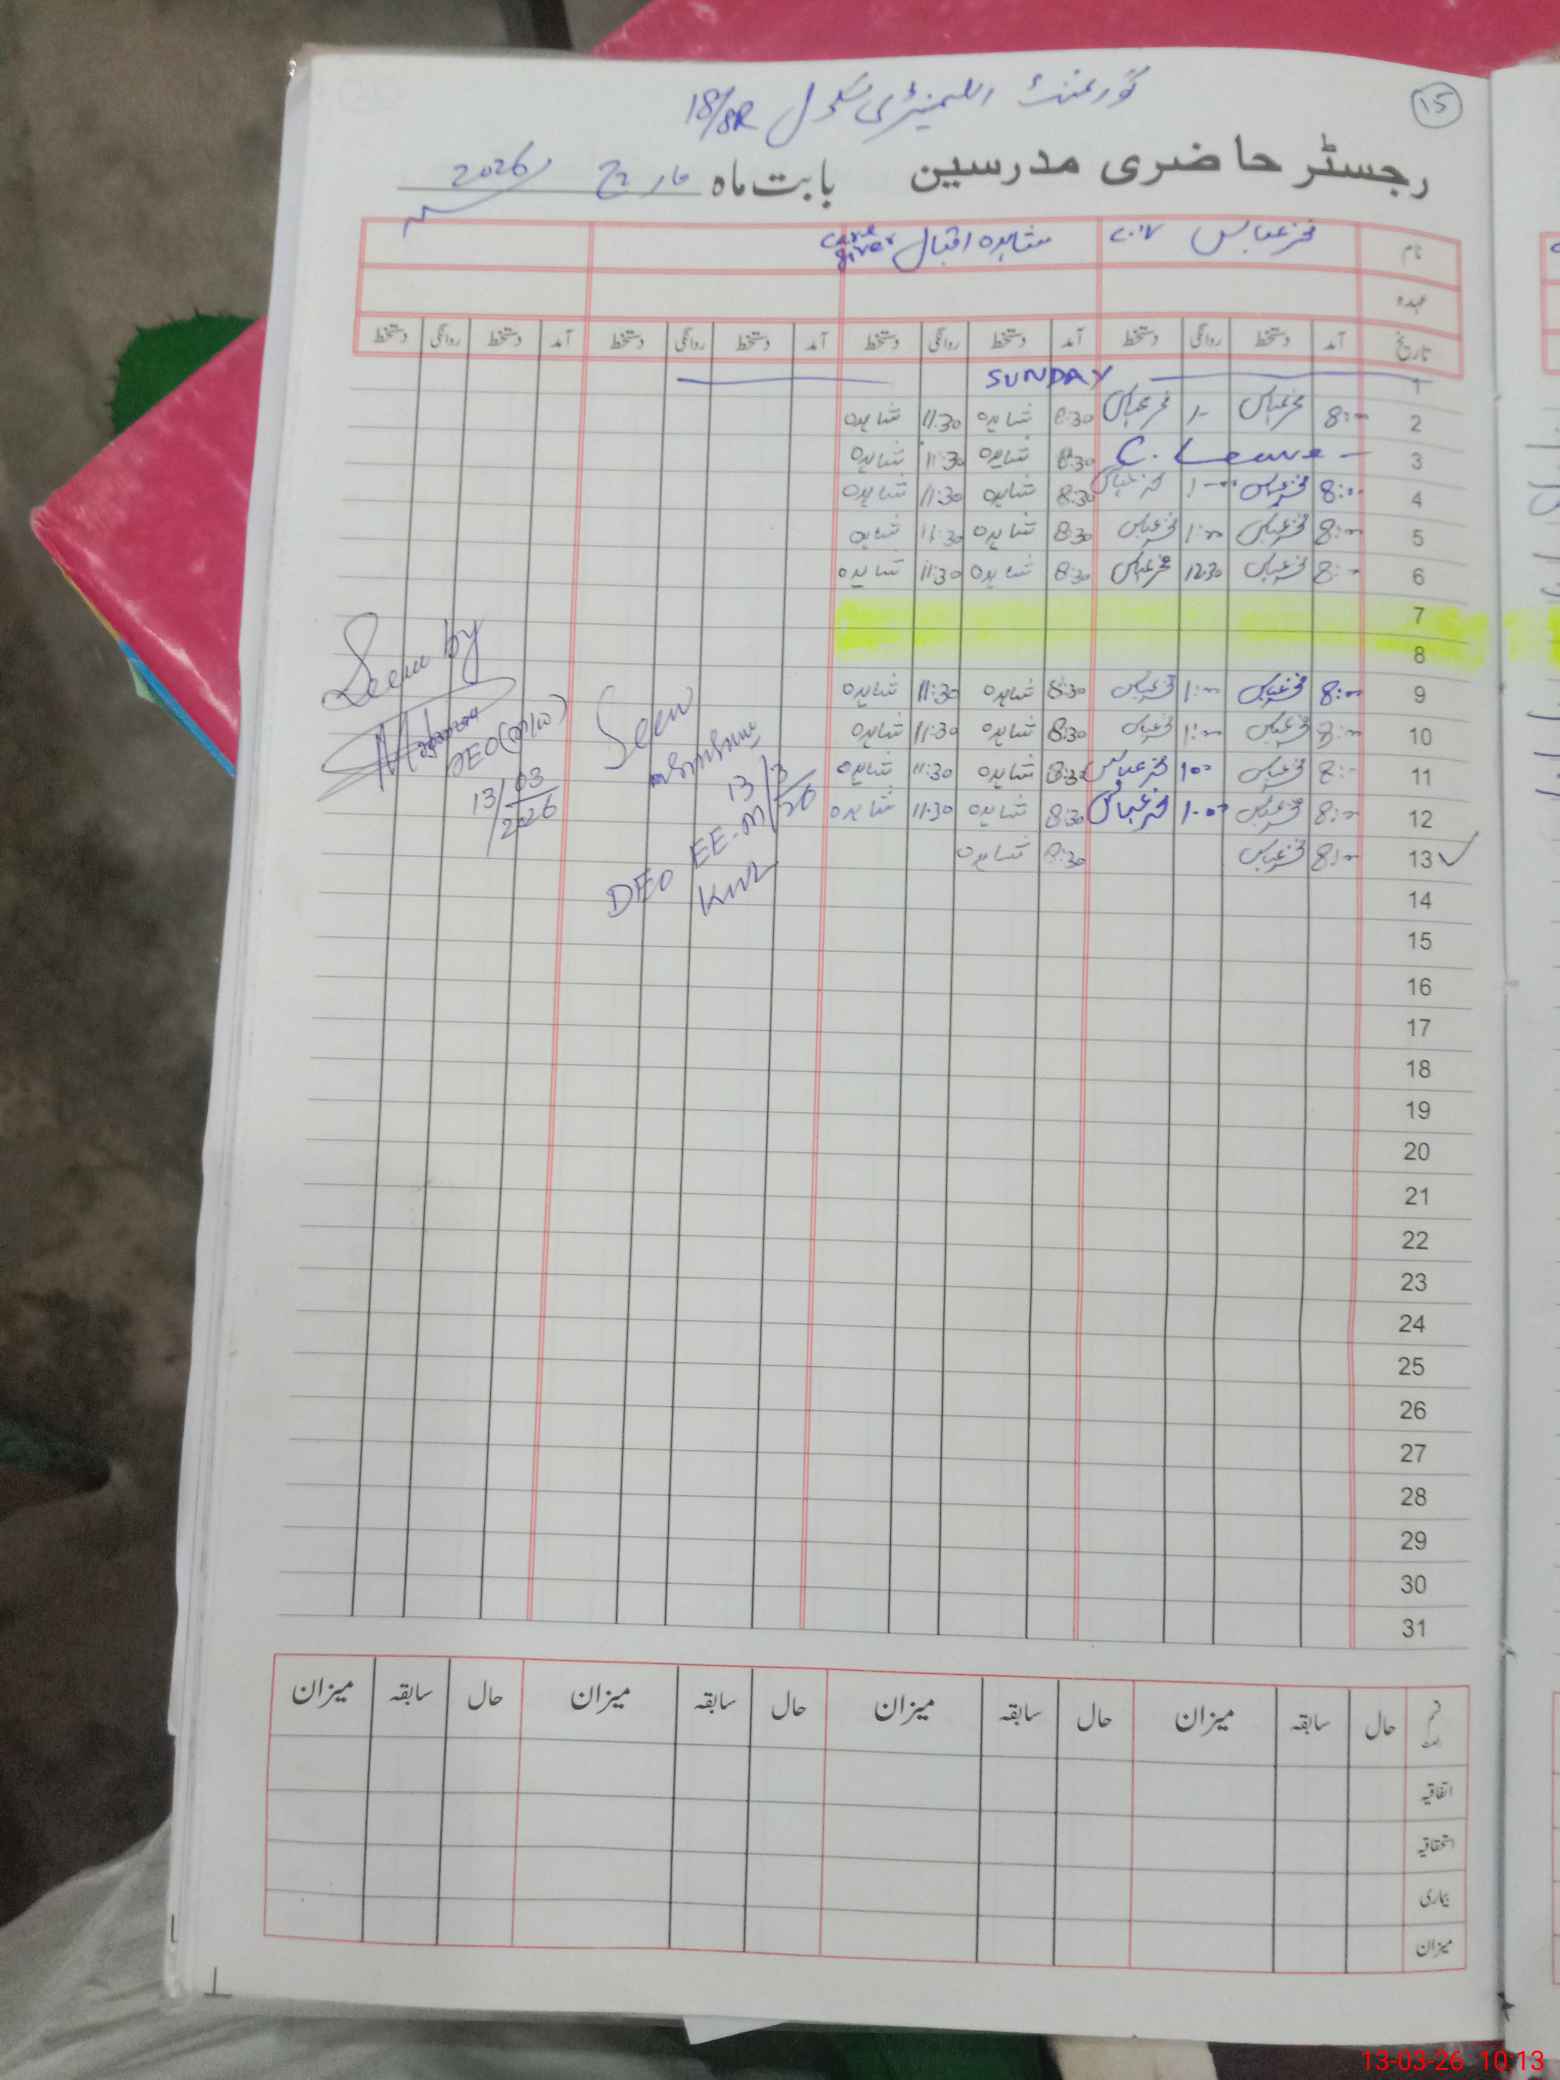 15
گورنمنٹ ایلیمنٹری سکول 18/8R
رجسٹر حاضری مدرسین بابت ماہ مارچ 2026
نام فخر عباس شاہدہ اقبال care giver
عہدہ
تاریخ آمد دستخط روانگی دستخط آمد دستخط روانگی دستخط آمد دستخط روانگی دستخط آمد دستخط روانگی دستخط
1 SUNDAY
2 8:00 فخر عباس 1- فخر عباس 8:30 شاہدہ 11:30 شاہدہ
3 C. Leave 8:30 شاہدہ 11:30 شاہدہ
4 8:00 فخر عباس 1-00 فخر عباس 8:30 شاہدہ 11:30 شاہدہ
5 8:00 فخر عباس 1:00 فخر عباس 8:30 شاہدہ 11:30 شاہدہ
6 8:00 فخر عباس 12:30 فخر عباس 8:30 شاہدہ 11:30 شاہدہ
7
8
9 8:00 فخر عباس 1:00 فخر عباس 8:30 شاہدہ 11:30 شاہدہ
10 8:00 فخر عباس 1:00 فخر عباس 8:30 شاہدہ 11:30 شاہدہ
11 8:00 فخر عباس 1:00 فخر عباس 8:30 شاہدہ 11:30 شاہدہ
12 8:00 فخر عباس 1:00 فخر عباس 8:30 شاہدہ 11:30 شاہدہ
13 8:00 فخر عباس 8:30 شاہدہ
Seen by
DEO (M/W)
13/03/2026
Seen
13/3/26
DEO EE-M
KWL
14
15
16
17
18
19
20
21
22
23
24
25
26
27
28
29
30
31
حال سابقہ میزان حال سابقہ میزان حال سابقہ میزان حال سابقہ میزان
اتفاقیہ
استحقاقیہ
بیماری
میزان
13-03-26 10:13